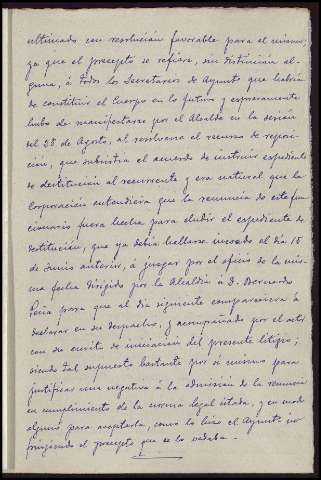 ultimado con resolución favorable para el mismo,
ya que el precepto se refiere, sin distinción al-
guna, á todos los Secretarios de Ayunto que habian
de constituir el Cuerpo en lo futuro y expresamente
hubo de manifestarse por el Alcalde en la sesión
del 28 de Agosto, al resolverse el recurso de reposi-
ción, que subsistia el acuerdo de instruir expediente
de destitución al recurrente y era natural que la
Corporación entendiera que la renuncia de este fun-
cionario fuera hecha para eludir el expediente de
destitución, que ya debia hallarse incoado el dia 15
de Junio anterior, á juzgar por el oficio de la mis-
ma fecha dirigido por la Alcaldia á D. Bernardo
Peña para que al dia siguiente compareciera á
declarar en su despacho, y acompañado por el actor
con su escrito de iniciación del presente litigio;
siendo tal supuesto bastante por si mismo para
justificar una negativa á la admisión de la renuncia
en cumplimiento de la norma legal citada, y en modo
alguno para aceptarla, como lo hizo el Ayunto in-
fringiendo el precepto que se lo vedaba.